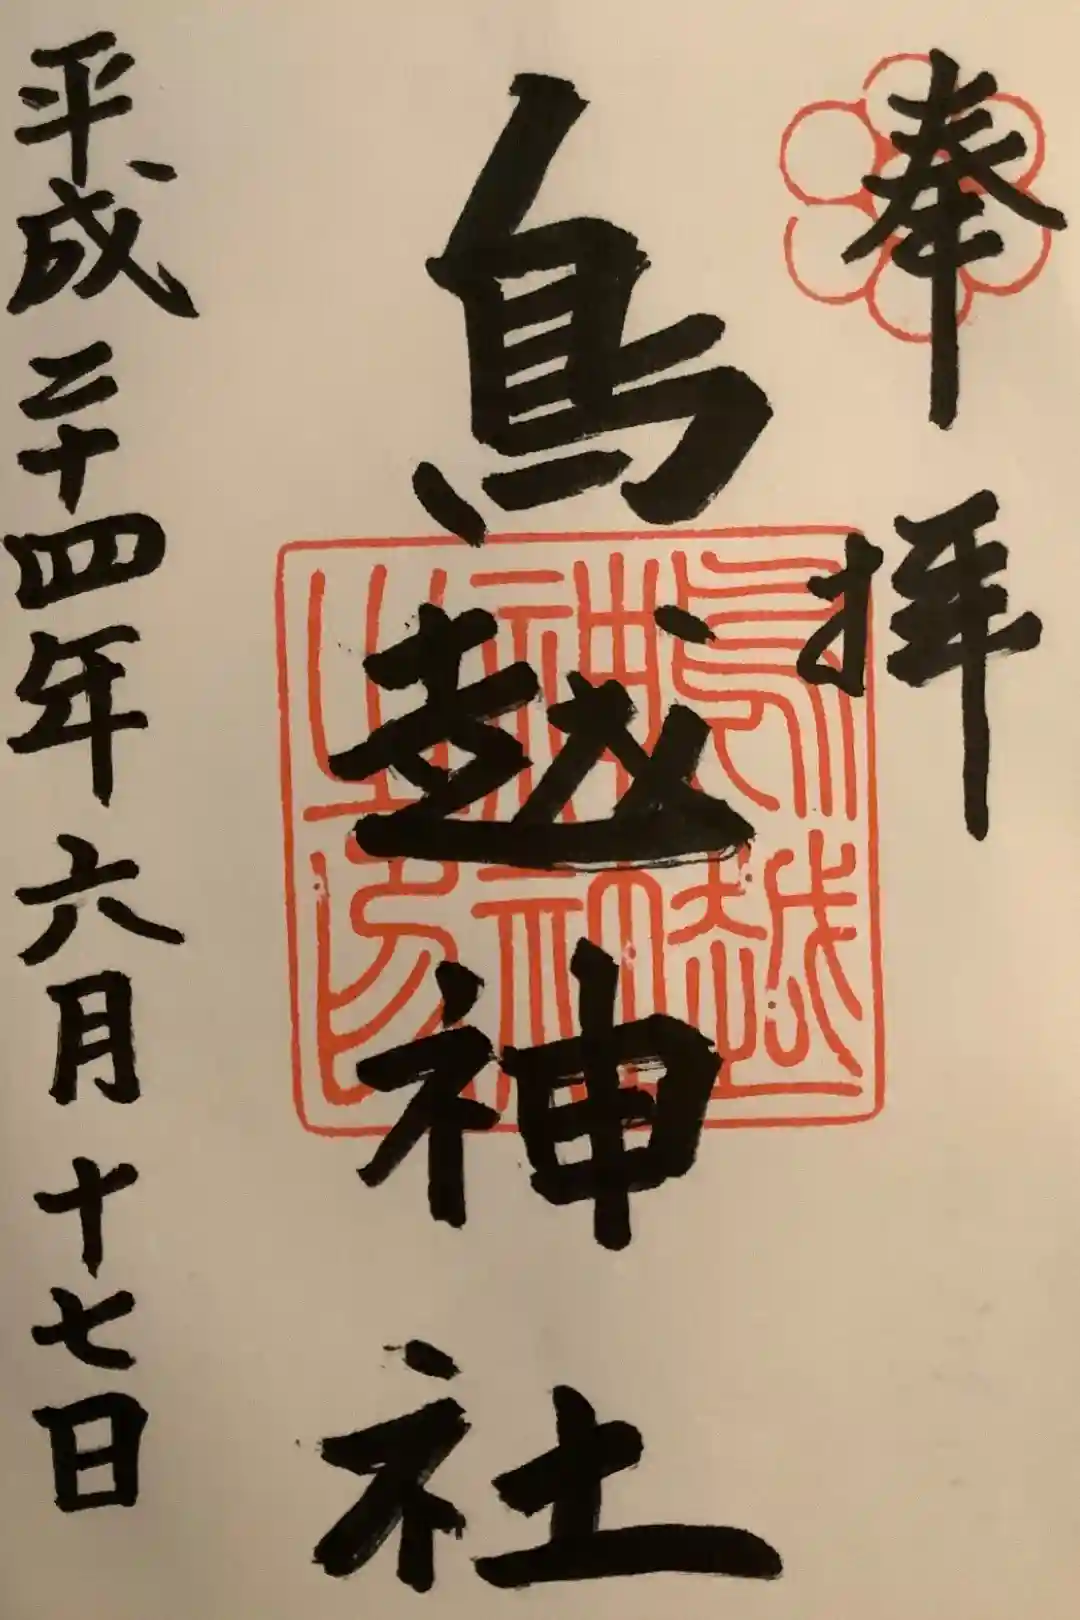 奉拝
鳥越神社
鳥越神社之印
平成二十四年六月十七日